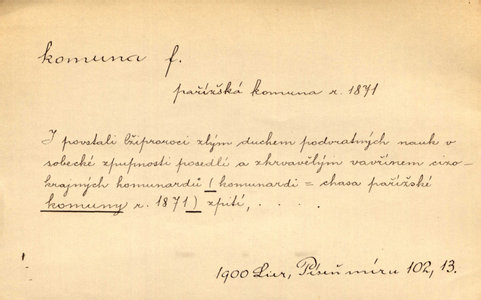 komuna f.
pařížská komuna r. 1871
I povstali lžiproroci zlým duchem podvratných nauk v
sobecké zpupnosti posedlí a zkrvavělým vavřínem cizo-
krajných komunardů (komunardi = chasa pařížské
komuny r. 1871) zpití, . . . .
1900 Lier, Píseň míru 102, 13.